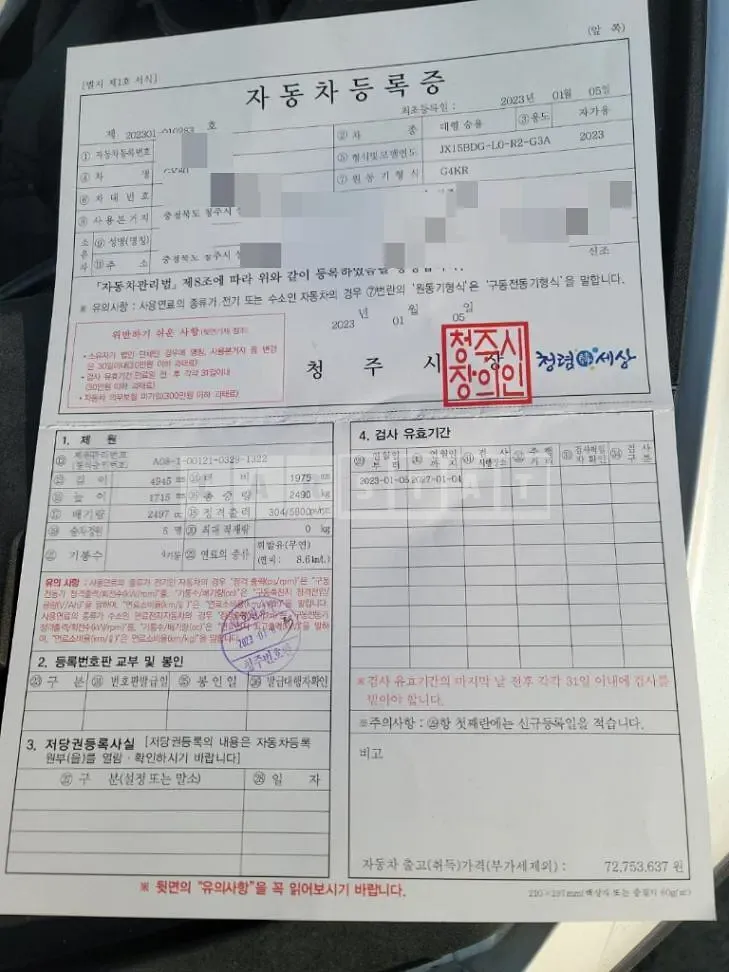 (앞 쪽)
[별지 제1호 서식]
자동차등록증
최초등록일 : 2023년 01월 05일
제 202301-010283 호
① 자동차등록번호 ② 차 종 대형 승용 ③ 용도 자가용
④ 차 명 GV80 ⑤ 형식및모델연도 JX15BDG-L0-R2-G3A 2023
⑥ 차대번호 ⑦ 원동기형식 G4KR
⑧ 사용본거지 충청북도 청주시
소유자 ⑨ 성명(명칭)
주 소 충청북도 청주시
「자동차관리법」 제8조에 따라 위와 같이 등록하였음을
※ 유의사항 : 사용연료의 종류가 전기 또는 수소인 자동차의 경우 ⑦번란의 '원동기형식'은 '구동전동기형식'을 말합니다.
2023 년 01 월 05 일
위반하기 쉬운 사항
• 소유자가 법인·단체인 경우에 명칭, 사용본거지 등 변경은 30일이내(30만원 이하 과태료)
• 검사 유효기간 만료일 전·후 각각 31일이내
(30만원 이하 과태료)
• 자동차 의무보험 미가입(300만원 이하 과태료)
청 주 시 장
청주시장의인
청렴 세상
1. 제 원
⑫ 제원관리번호
(형식승인번호) A08-1-00121-0329-1322
길 이 4945 mm 너 비 1975 mm
높 이 1715 mm 총 중 량 2490 kg
배기량 2497 cc 정격출력 304/5800ps/rpm
승차정원 5 명 최대적재량 0 kg
기통수 4기통 연료의 종류 휘발유(무연)
(연비: 8.6km/L)
2. 등록번호판 교부 및 봉인
구 분 번호판발급일 봉인일 발급대행자확인
3. 저당권등록사실 [저당권등록의 내용은 자동차등록
원부(을)를 열람·확인하시기 바랍니다]
구 분(설정 또는 말소) 일 자
4. 검사 유효기간
연월일
부터 연월일
까지 검 사
시행장소 주 행
거 리 검사책임
자확인 검 사
구 분
2023-01-05 2027-01-04
※ 검사 유효기간의 마지막 날 전후 각각 31일 이내에 검사를
받아야 합니다.
※주의사항 : ㉙항 첫째란에는 신규등록일을 적습니다.
비고
자동차 출고(취득)가격(부가세제외) : 72,753,637 원
※ 뒷면의 "유의사항"을 꼭 읽어보시기 바랍니다.